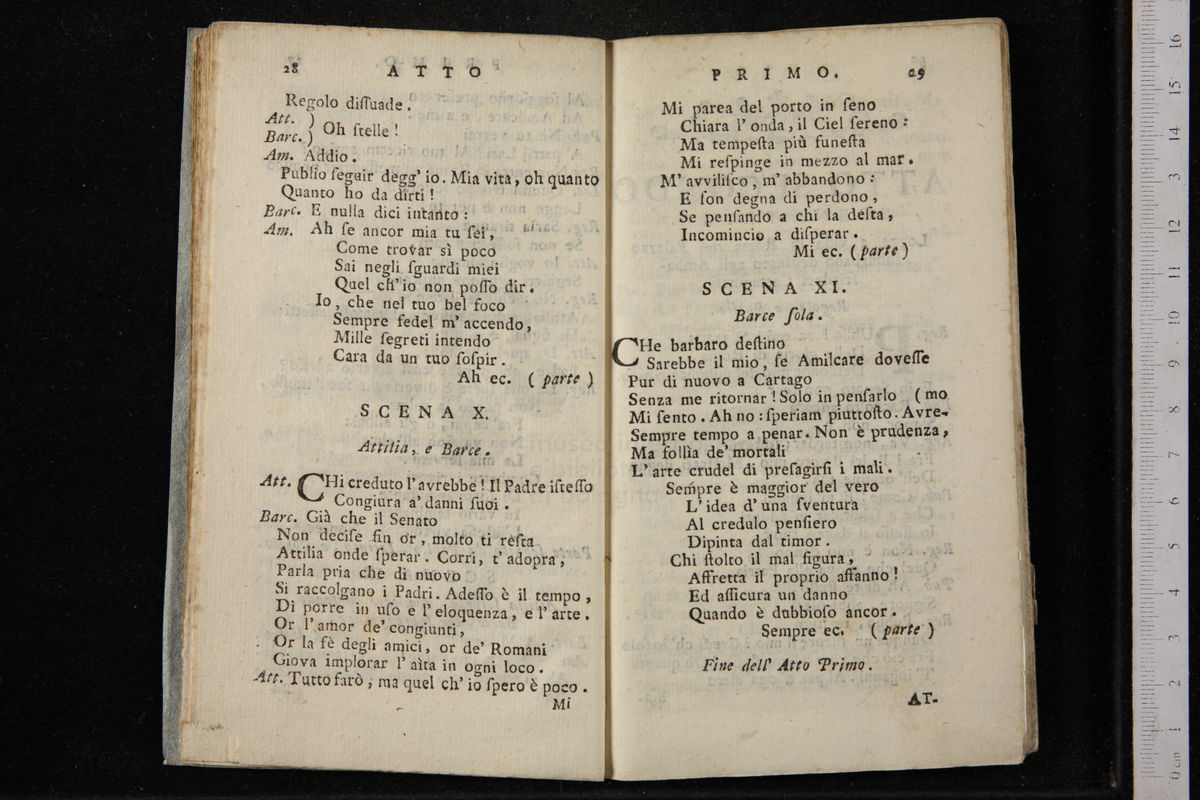 28 ATTO
Regolo diſſuade.
Att. )
Barc.) Oh ſtelle!
Am. Addio.
Publio ſeguir degg' io. Mia vita, oh quanto
Quanto ho da dirti!
Barc. E nulla dici intanto:
Am. Ah ſe ancor mia tu ſei,
Come trovar sì poco
Sai negli ſguardi miei
Quel ch'io non poſſo dir.
Io, che nel tuo bel foco
Sempre fedel m' accendo,
Mille ſegreti intendo
Cara da un tuo ſoſpir.
Ah ec. (parte)
SCENA X.
Attilia, e Barce.
Att. CHi creduto l'avrebbe! Il Padre iſteſſo
Congiura a' danni ſuoi.
Barc. Già che il Senato
Non deciſe fin or, molto ti reſta
Attilia onde ſperar. Corri, t' adopra,
Parla pria che di nuovo
Si raccolgano i Padri. Adeſſo è il tempo,
Di porre in uſo e l' eloquenza, e l' arte.
Or l' amor de' congiunti,
Or la fè degli amici, or de' Romani
Giova implorar l' aìta in ogni loco.
Att. Tutto farò, ma quel ch' io ſpero è poco.
Mi
PRIMO. 29
Mi parea del porto in ſeno
Chiara l' onda, il Ciel ſereno:
Ma tempeſta più funeſta
Mi reſpinge in mezzo al mar.
M' avviliſco, m' abbandono:
E ſon degna di perdono,
Se penſando a chi la deſta,
Incomincio a diſperar.
Mi ec. (parte)
SCENA XI.
Barce ſola.
CHe barbaro deſtino
Sarebbe il mio, ſe Amilcare doveſſe
Pur di nuovo a Cartago
Senza me ritornar! Solo in penſarlo (mo
Mi ſento. Ah no: ſperiam piuttoſto. Avre-
Sempre tempo a penar. Non è prudenza,
Ma follìa de' mortali
L' arte crudel di preſagirſi i mali.
Sempre è maggior del vero
L' idea d' una ſventura
Al credulo penſiero
Dipinta dal timor.
Chi ſtolto il mal figura,
Affretta il proprio affanno!
Ed aſſicura un danno
Quando è dubbioſo ancor.
Sempre ec. (parte)
Fine dell' Atto Primo.
AT-